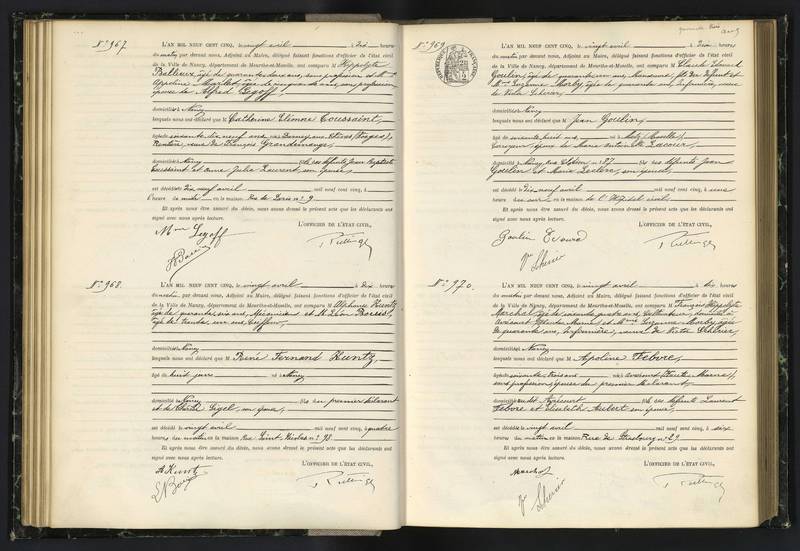 N° 967.
L'AN MIL NEUF CENT CINQ, le vingt avril à dix heures
du matin par devant nous, Adjoint au Maire, délégué faisant fonctions d'officier de l'état civil
de la Ville de Nancy, département de Meurthe-et-Moselle, ont comparu M Hippolyte
âgé de quarante deux ans, sans profession et M
ans, sans profession,
épouse de Alfred Legoff,
domiciliés à Nancy
lesquels nous ont déclaré que M Catherine Etienne Toussaint,
âgée de soixante dix neuf ans née à (Vosges),
Rentière, veuve de François Grandemange,
domiciliée à Nancy fille des défunts Jean Baptiste
Toussaint et Anne Julie Laurent, son épouse,
est décédée le dix neuf avril mil neuf cent cinq, à
heures du en la maison Rue de n° 9
Et après nous être assuré du décès, nous avons dressé le présent acte que les déclarants ont
signé avec nous après lecture.
L'OFFICIER DE L'ÉTAT CIVIL,
Mme Legoff
N° 968.
L'AN MIL NEUF CENT CINQ, le vingt avril à dix heures
du matin, par devant nous, Adjoint au Maire, délégué faisant fonctions d'officier de l'état civil
de la Ville de Nancy, département de Meurthe-et-Moselle, ont comparu M Alphonse Kuntz
âgé de quarante six ans, Mécanicien et M Léon
âgé de trente six ans, Coiffeur,
domiciliés à Nancy
lesquels nous ont déclaré que M René Fernand Kuntz,
âgé de huit jours né à Nancy
domicilié à Nancy fils du premier déclarant
et de Gigel, son épouse,
est décédé le vingt avril mil neuf cent cinq, à quatre
heures du matin en la maison Rue Saint Nicolas n° 98
Et après nous être assuré du décès, nous avons dressé le présent acte que les déclarants ont
signé avec nous après lecture.
L'OFFICIER DE L'ÉTAT CIVIL,
A Kuntz
N° 969
L'AN MIL NEUF CENT CINQ, le vingt avril à dix heures
du matin par devant nous, Adjoint au Maire, délégué faisant fonctions d'officier de l'état civil
de la Ville de Nancy, département de Meurthe-et-Moselle, ont comparu M Claude Edouard
Goulin, âgé de quarante un ans, fils du défunt et
Mme Suzanne Morby âgée de quarante ans, Infirmière, veuve
de Victor
domiciliés à Nancy
lesquels nous ont déclaré que M Jean Goulin,
âgé de soixante huit ans né à Metz (Moselle)
époux de Marie Antoinette Lacour,
domicilié à Nancy n° 187 fils des défunts Jean
Goulin et Marie Leclerc, son épouse,
est décédé le dix neuf avril mil neuf cent cinq, à une
heure du soir en la maison de l'Hôpital civil,
Et après nous être assuré du décès, nous avons dressé le présent acte que les déclarants ont
signé avec nous après lecture.
L'OFFICIER DE L'ÉTAT CIVIL,
Goulin Edouard
N° 970.
L'AN MIL NEUF CENT CINQ, le vingt avril à dix heures
du matin, par devant nous, Adjoint au Maire, délégué faisant fonctions d'officier de l'état civil
de la Ville de Nancy, département de Meurthe-et-Moselle, ont comparu M François Hippolyte
Marchal, âgé de soixante quatre ans, Cultivateur, domicilié à
(Haute Marne) et Mme Suzanne Morby âgée
de quarante ans, Infirmière, veuve de Victor
domiciliée à Nancy
lesquels nous ont déclaré que M Apoline Febvre,
âgée de soixante trois ans née à (Haute Marne),
sans profession, épouse du premier déclarant
domiciliée fille des défunts Laurent
Febvre et Elisabeth Aubert son épouse,
est décédée le vingt avril mil neuf cent cinq, à
heures du matin en la maison Rue de Strasbourg n° 29
Et après nous être assuré du décès, nous avons dressé le présent acte que les déclarants ont
signé avec nous après lecture.
L'OFFICIER DE L'ÉTAT CIVIL,
Marchal